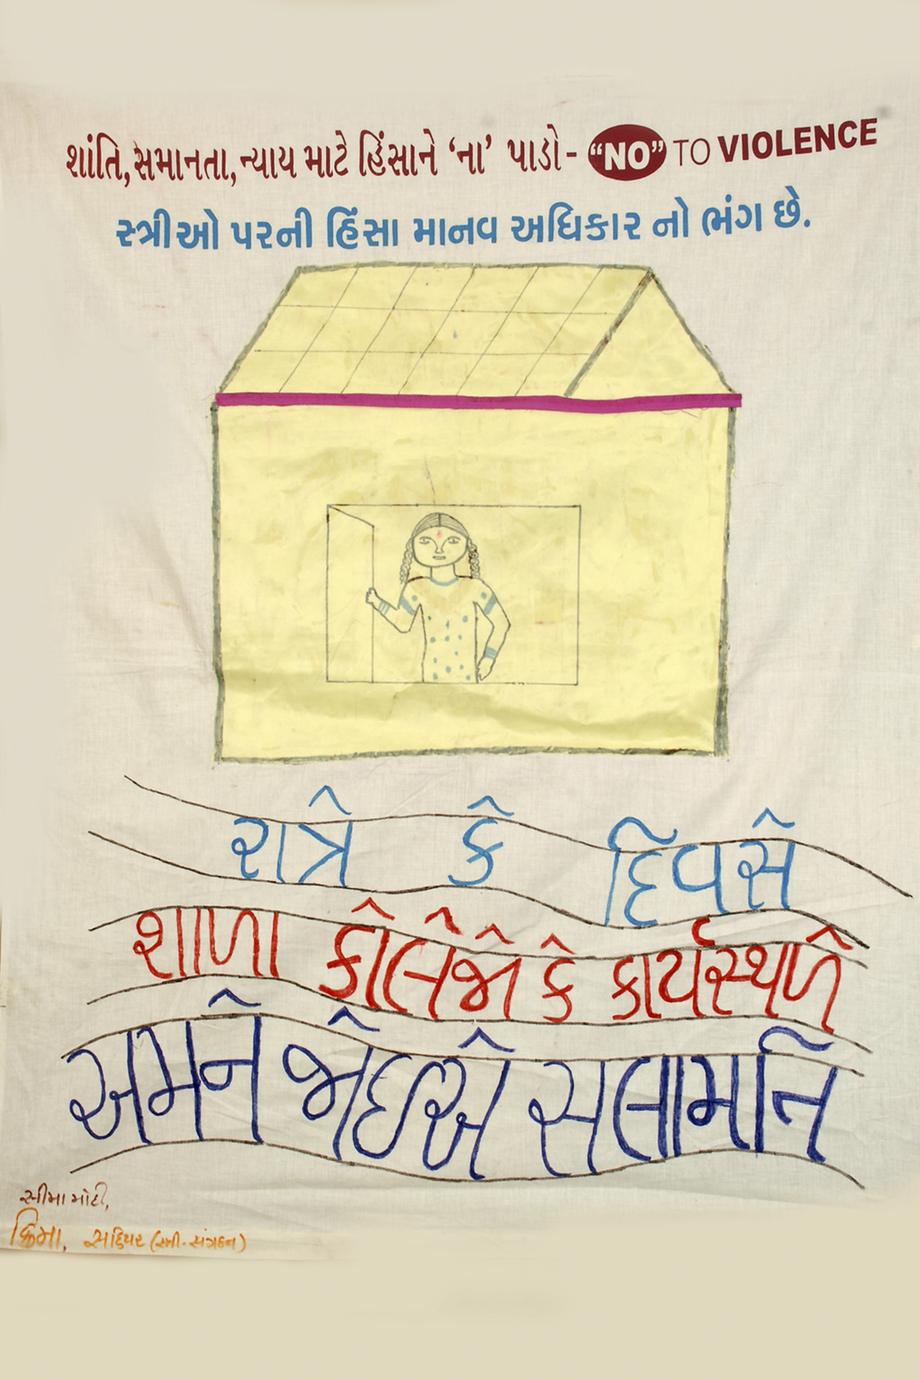 શાંતિ,સમાનતા,ન્યાય માટે હિંસાને ‘ના’ પાડો- “NO” TO VIOLENCE
સ્ત્રીઓ પરની હિંસા માનવ અધિકાર નો ભંગ છે.
રાત્રે કે દિવસે
શાળા કોલેજો કે કાર્યસ્થળે
અમને જોઇએ સલામતિ
સીમા મોદી,
ક્રિમા, સહિયર (સ્ત્રી-સંગઠન)